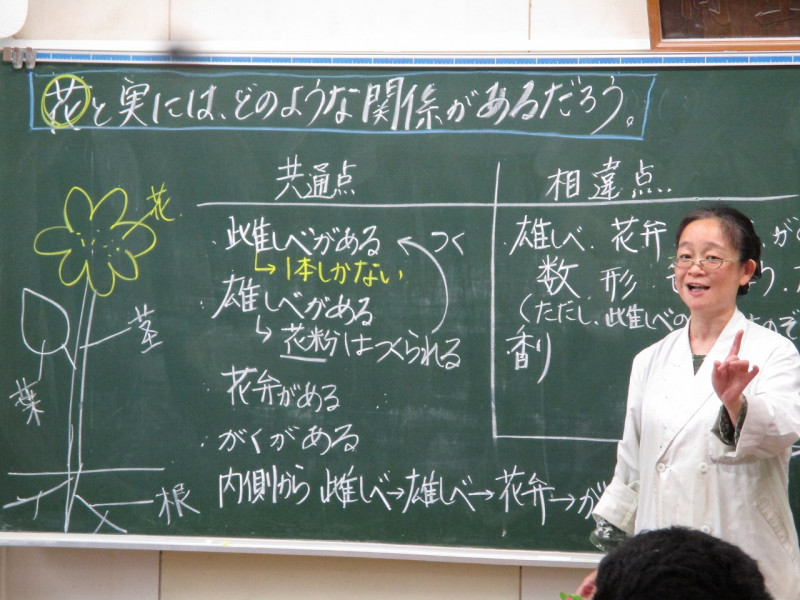 花と実には、どのような関係があるだろう。
花
茎
葉
根
共通点
・雌しべがある
つく
↳1本しかない
・雄しべがある
↳花粉はつくられる
・花弁がある
・がくがある
・内側から 雌しべ→雄しべ→花弁→が
相違点
雄しべ、花弁
数 形
(ただし、雌しべの
香り